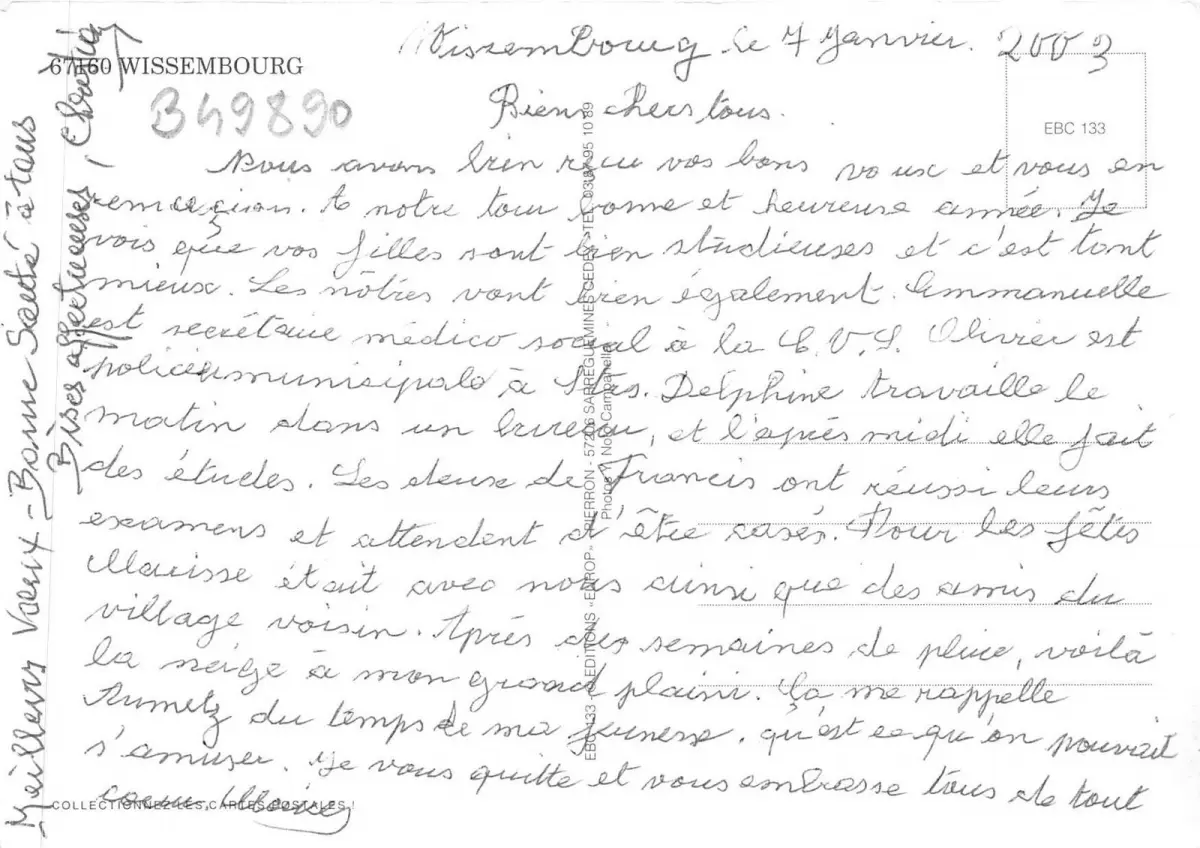 Wissembourg le 7 Janvier. 2003
67160 WISSEMBOURG
B49890
EBC 133
Biens chers tous.
Nous avons bien reçu vos bons voux et vous en
remercions. A notre tour bonne et heureuse année. Je
vois que vos filles sont bien studieuses et c'est tant
mieux. Les nôtres vont bien également. Emmanuelle
est secrétaire médico social à la C.V.S. Olivier est
policier municipale à Stbs. Delphine travaille le
matin dans un bureau, et l'après midi elle fait
des études. Les deux de Francis ont réussi leurs
examens et attendent d'être casés. Pour les fêtes
était avec nous ainsi que des amis du
village voisin. Après des semaines de pluie, voilà
la neige à mon grand plaisir. Ça me rappelle
Rumelz du temps de ma jeunesse, qu'est ce qu'on pouvait
s'amuser. Je vous quitte et vous embrasse tous de tout
coeur.
COLLECTIONNEZ LES CARTES POSTALES !
Meilleurs Vœux - Bonne Santé à tous
Bises affectueuses,
EBC 133 EDITIONS «EUROP» PIERRON - 57206 SARREGUEMINES CEDEX
Photos